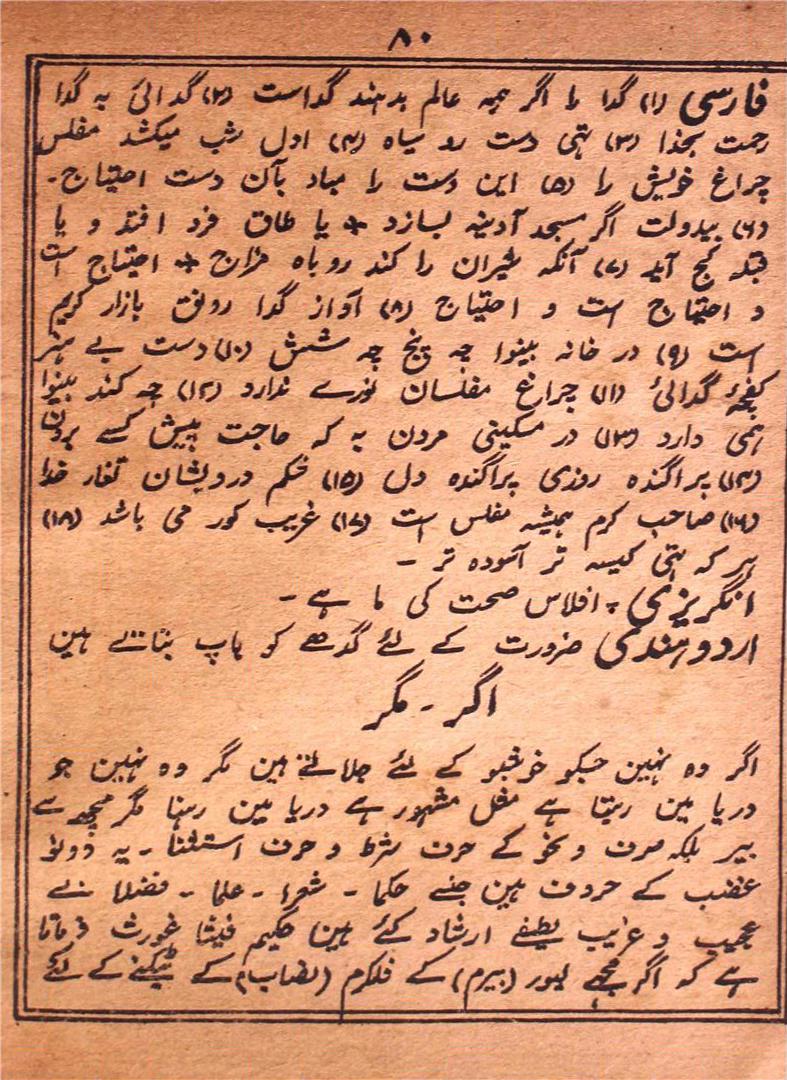 ۸۰
فارسی (۱) گدا را اگر ہمہ عالم بدہند گداست (۲) گدائی بہ گدا
رحمت بخدا (۳) تہی دست رو سیاہ (۴) اول شب میکشد مفلس
چراغ خویش را (۵) این دست را مباد بآن دست احتیاج۔
(۶) بیدولت اگر مسجد آدینہ بسازد + یا طاق فرد افتد و یا
قبلہ کج آید (۷) آنکہ شیران را کند روباہ مزاج + احتیاج است
و احتیاج است و احتیاج (۸) آواز گدا رونق بازار کریم
است (۹) در خانہ بینوا چہ پنج چہ شش (۱۰) دست بے ہنر
کفچۂ گدائی (۱۱) چراغ مفلسان نورے ندارد (۱۲) چہ کند بینوا
ہمی دارد (۱۳) در مسکینی مردن بہ کہ حاجت پیش کسے بردن
(۱۴) پراگندہ روزی پراگندہ دل (۱۵) شکم درویشان تغار خدا
(۱۶) صاحب کرم ہمیشہ مفلس است (۱۷) غریب کور می باشد (۱۸)
ہر کہ تہی کیسہ تر آسودہ تر ۔
انگریزی افلاس صحت کی ما ہے ۔
اردو ہندی ضرورت کے لئے گدھے کو باپ بناتے ہین
اگر ۔ مگر
اگر وہ نہین جسکو خوشبو کے لئے جلاتے ہین مگر وہ نہین جو
دریا مین رہتا ہے مثل مشہور ہے دریا مین رہنا مگر مچھ سے
بیر بلکہ صرف و نحو کے حرف شرط و حرف استثنا ۔ یہ دونو
غضب کے حروف ہین جنسے حکما ۔ شعرا ۔ علما ۔ فضلا نے
عجیب و غریب لطیفے ارشاد کئے ہین حکیم فیثا غورث فرماتا
ہے کہ اگر مجھے لیور (بیرم) کے فلکرم (نصاب) کے ٹیکنے کے لئے